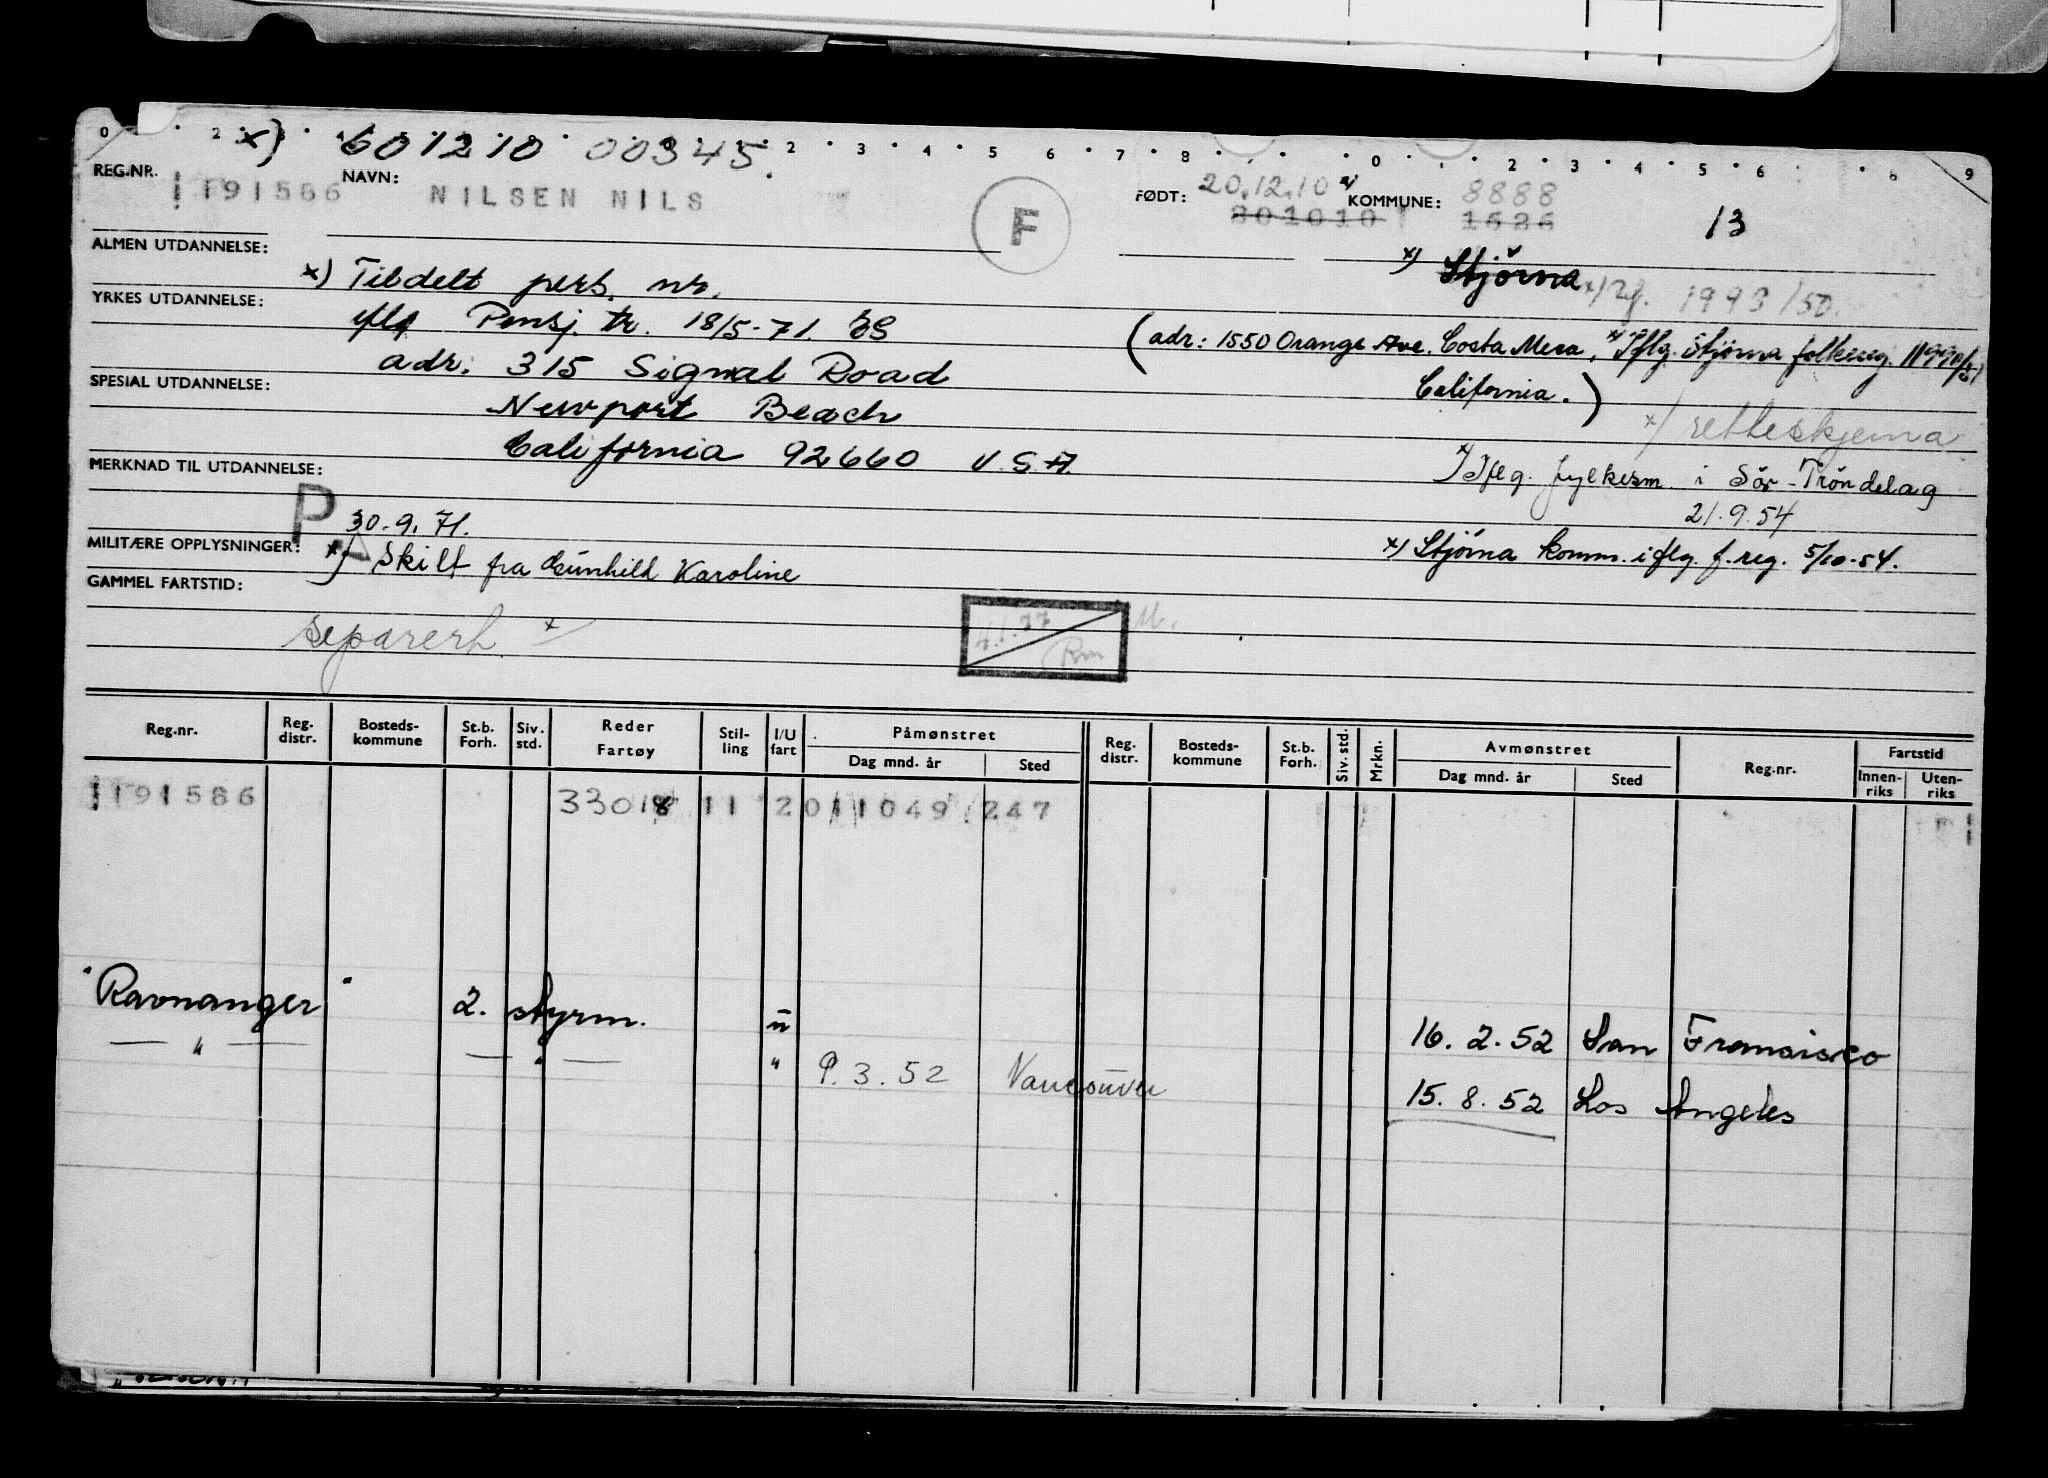 0 2 x) 601210 00345. 2 3 4 5 6 7 8 0 2 3 4 5 6 8 9
REG.NR. 191586 NAVN: NILSEN NILS F FØDT: 20.12.10 x) KOMMUNE: 8888
201010 1626 13
ALMEN UTDANNELSE:
x) Tildelt pers. nr. x) Stjörna x) 1993/50.
YRKES UTDANNELSE:
iflg Pensj. tr. 18/5-71. ES
(adr: 1550 Orange Ave. Costa Mesa, x) Iflg. Stjörna folkereg.
California.)
adr. 315 Signal Road
SPESIAL UTDANNELSE:
Newport Beach
x) retteskjema
California 92660 U.S.A.
MERKNAD TIL UTDANNELSE:
x) Iflg. fylkesm. i Sör-Tröndelag
21.9.54
P.A
30.9.71.
MILITÆRE OPPLYSNINGER: x) Skilt fra Gunhild Karoline
x) Stjörna komm. iflg. f.reg. 5/10-54.
GAMMEL FARTSTID:
separert x
Rm
M.
Reg.nr. Reg. distr. Bosteds-kommune St.b. Forh. Siv. std. Reder Fartøy Stil-ling I/U fart Påmønstret Dag mnd. år Sted Reg. distr. Bosteds-kommune St.b. Forh. Siv. std. Mrkn. Avmønstret Dag mnd. år Sted Reg.nr. Fartstid Innen-riks Uten-riks
191586 33018 11 2 011049 247
"Ravnanger" 2. styrm. u 16.2.52 San Fransisco
— " — — " — " 9.3.52 Vancouver 15.8.52 Los Angeles